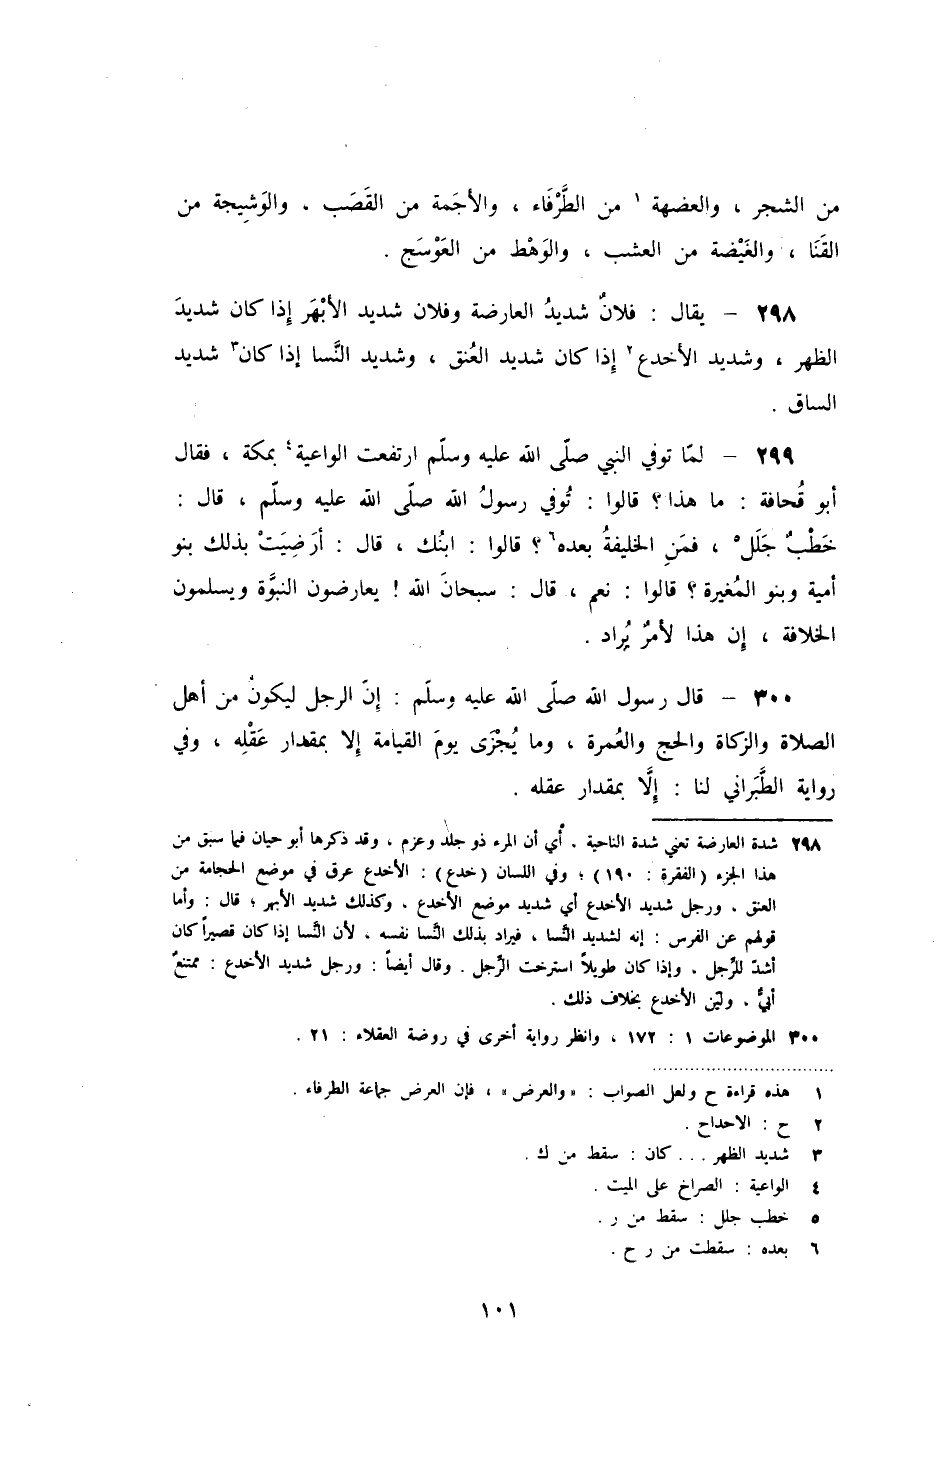 من الشجر ، والعضهة ١ من الطَّرْفَاء ، والأجَمة من القَصَب . والوَشيجة من
القَنَا ، والغَيْضة من العشب ، والوَهْط من العَوْسَج .
٢٩٨ – يقال : فلانٌ شديدُ العارضة وفلان شديد الأبْهَر إِذا كان شديدَ
الظهر ، وشديد الأخدع٢ إِذا كان شديد العُنق ، وشديد النَّسا إذا كان٣ شديد
الساق .
٢٩٩ – لمّا توفي النبي صلّى الله عليه وسلّم ارتفعت الواعية٤ بمكة ، فقال
أبو قُحافة : ما هذا ؟ قالوا : تُوفي رسولُ الله صلّى الله عليه وسلّم ، قال :
خَطْبٌ جَلَل٥ ، فمَنِ الخليفةُ بعده٦ ؟ قالوا : ابنُك ، قال : أرَضِيَتْ بذلك بنو
أمية وبنو المُغيرة ؟ قالوا : نعم ، قال : سبحانَ الله ! يعارضون النبوَّة ويسلمون
الخلافة ، إِن هذا لأمرٌ يُراد .
٣٠٠ – قال رسول الله صلّى الله عليه وسلّم : إِنّ الرجل ليكونُ من أهل
الصلاة والزكاة والحج والعُمرة ، وما يُجْزَى يومَ القيامة إِلا بمقدار عَقْلِه ، وفي
رواية الطَّبَراني لنا : إِلَّا بمقدار عقله .
٢٩٨ شدة العارضة تعني شدة الناحية . أي أن المرء ذو جلد وعزم ، وقد ذكرها أبو حيان فيما سبق من
هذا الجزء (الفقرة : ١٩٠) ؛ وفي اللسان (خدع) : الأخدع عرق في موضع الحجامة من
العنق . ورجل شديد الأخدع أي شديد موضع الأخدع . وكذلك شديد الأبهر ؛ قال : وأما
قولهم عن الفرس : إنه لشديد النَّسا ، فيراد بذلك النَّسا نفسه ، لأن النَّسا إذا كان قصيراً كان
أشدّ للرِّجل . وإذا كان طويلاً استرخت الرِّجل . وقال أيضاً : ورجل شديد الأخدع : ممتنعٌ
أبيٌّ . وليّن الأخدع بخلاف ذلك .
٣٠٠ الموضوعات ١ : ١٧٢ ، وانظر رواية أخرى في روضة العقلاء : ٢١ .
١ هذه قراءة ح ولعل الصواب : «والعرض» ، فإن العرض جماعة الطرفاء .
٢ ح : الاحداج .
٣ شديد الظهر . . . كان : سقط من ك .
٤ الواعية : الصراخ على الميت .
٥ خطب جلل : سقط من ر .
٦ بعده : سقطت من ر ح .
١٠١